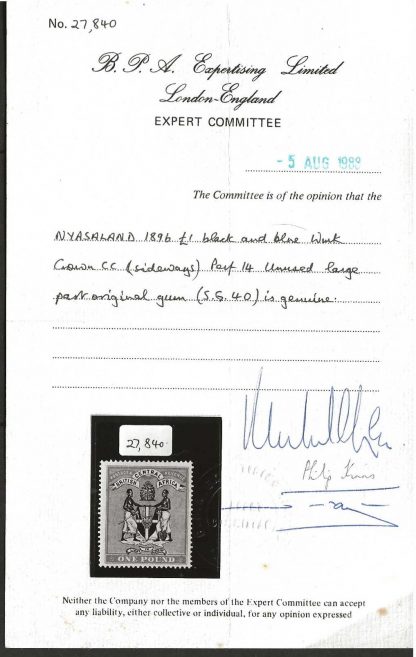 No. 27,840
B. P. A. Expertising Limited
London-England
EXPERT COMMITTEE
- 5 AUG 1988
The Committee is of the opinion that the
NYASALAND 1896 £1 black and blue Wmk
Crown CC (sideways) Perf 14 Unused large
part original gum (S.G. 40) is genuine.
27,840
BRITISH CENTRAL AFRICA
ONE POUND
Neither the Company nor the members of the Expert Committee can accept
any liability, either collective or individual, for any opinion expressed